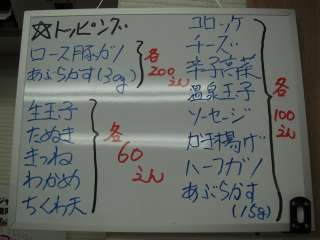 ☆トッピング
ロース豚カツ
あぶらかす(30g)
各
200
えん
生玉子
たぬき
きつね
わかめ
ちくわ天
各
60
えん
コロッケ
チーズ
辛子高菜
温泉玉子
ソーセージ
かき揚げ
ハーフカツ
あぶらかす
(15g)
各
100
えん